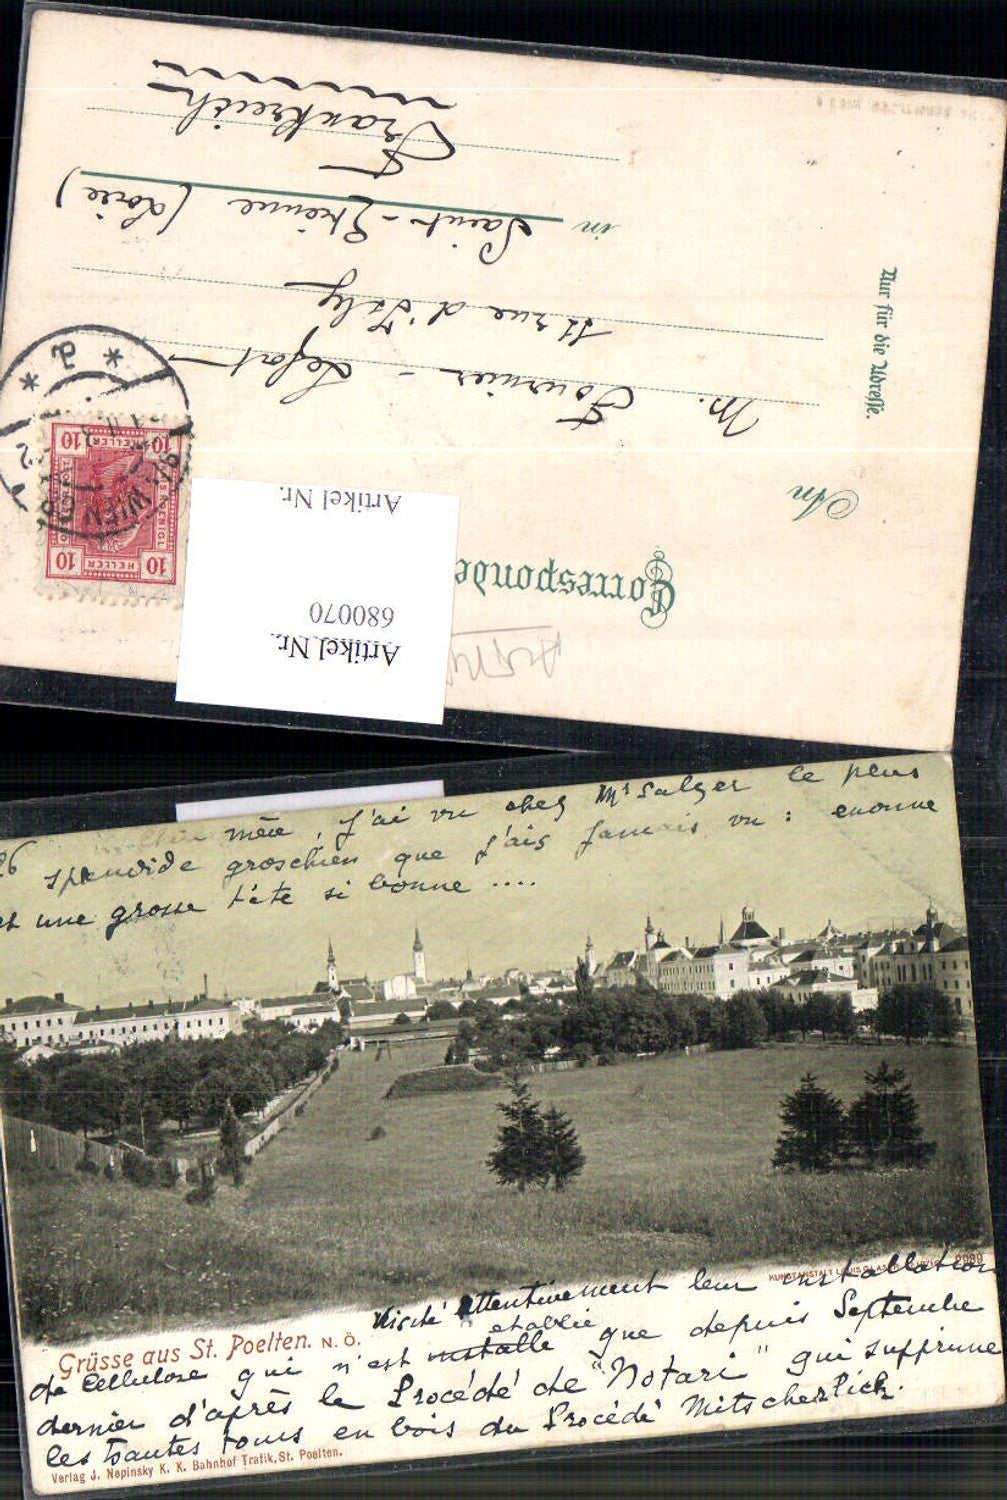 Correspondenz
An
M. Fournier - Lefort
11 rue d'Isly
in Saint-Etienne (Loire)
Frankreich
Nur für die Adresse.
Artikel Nr.
680070
Artikel Nr.
10 HELLER 10
WIEN
mère, j'ai vu chez Mr Salzer le plus
splendide groschien que j'ais jamais vu : enonne
et une grosse tête si bonne ....
KUNSTANSTALT LOUIS GLASER, LEIPZIG 2099
Visité attentivement leur installation
Grüsse aus St. Poelten. N. Ö.
de cellulose qui n'est installe etablie que depuis Septembre
dernier d'après le Procédé de "Notari" qui supprime
les hautes tours en bois du Procédé Mitscherlich.
Verlag J. Nepinsky K. K. Bahnhof Trafik, St. Poelten.